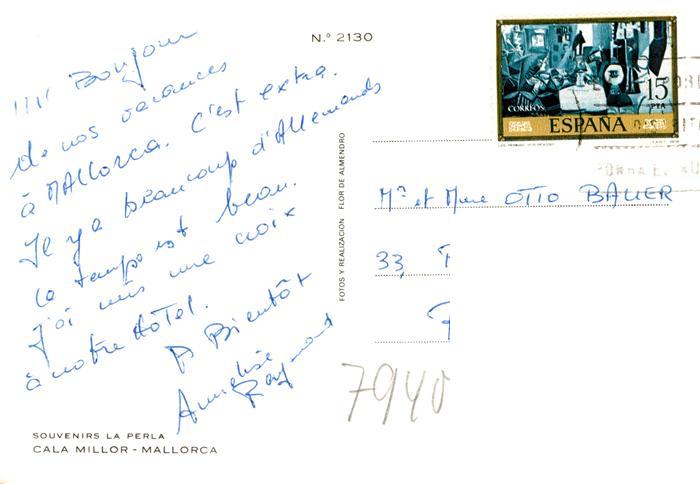 N.º 2130
Bonjour
de nos vacances
à MALLORCA. C'est extra.
Il y a beaucoup d'Allemands
Le temps est beau.
J'ai mis une croix
à notre Hôtel.
A Bientôt
Annelise
Raymond
SOUVENIRS LA PERLA
CALA MILLOR - MALLORCA
FOTOS Y REALIZACION FLOR DE ALMENDRO
CORREOS
15
PTA
ESPAÑA
Mr et Mme OTTO BAUER
33,
7940